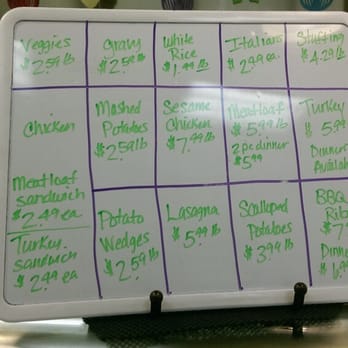 Veggies
$2.59 lb
Gravy
$2.59 lb
White
Rice
$1.99 lb
Italians
$2.99 ea
Stuffing
$4.29 lb
Chicken
Meatloaf
Sandwich
$2.49 ea
Turkey
Sandwich
$2.49 ea
Mashed
Potatoes
$2.59 lb
Sesame
Chicken
$7.99 lb
Meatloaf
$5.99 lb
2 pc dinner
$5.99
Turkey
$5.99
Dinner
Availab
Potato
Wedges
$2.59 lb
Lasagna
$5.99 lb
Scalloped
Potatoes
$3.99 lb
BBQ
Rib
$7.
Dinne
$6.99